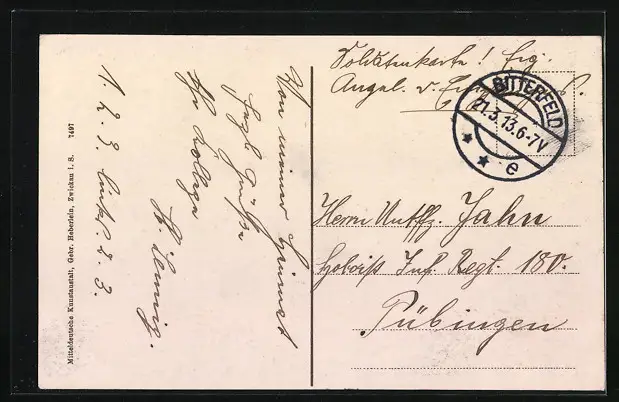 Soldatenkarte! Eig.
Angel. v.
BITTERFELD
21.3.13.6-7V
* * e
Herrn Untffz. Jahn
Inf. Regt. 180.
Tübingen
Von meiner Heimat
Grüße
Ihr Kollege
N. L. Z.
Mitteldeutsche Kunstanstalt, Gebr. Heberlein, Zwickau i. S. 7497